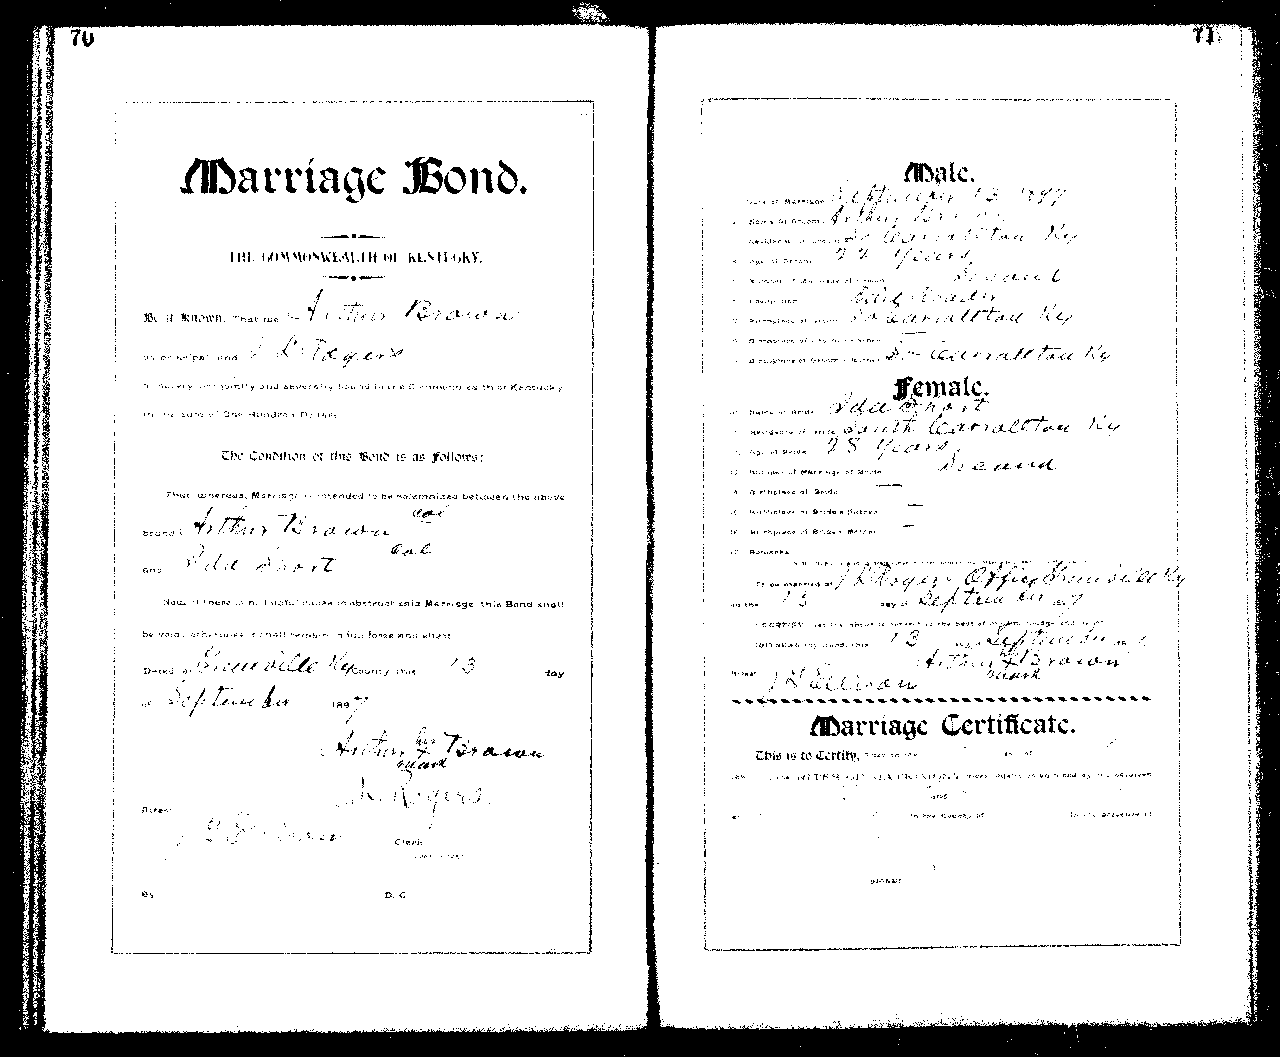 70
Marriage Bond.
THE COMMONWEALTH OF KENTUCKY.
Be it Known, That we Arthur Brown
as principal and Rogers
as surety, are jointly and severally bound to the Commonwealth of Kentucky
in the sum of One Hundred Dollars.
The Condition of this Bond is as Follows:
That, whereas, Marriage is intended to be solemnized between the above
bound Arthur Brown Col
and Ida Short Col
Now, if there is no lawful cause to obstruct this Marriage, this Bond shall
be void, otherwise it shall remain in full force and effect.
Dated at Greenville Ky County, this 13 day
of September 1897
Arthur his X mark Brown
Rogers
Attest:
Clerk
By D. C.
71
Male.
Date of Marriage September 13 1897
Name of Groom Arthur Brown
Residence of Groom So Carrollton Ky
Age of Groom Years
Number of Marriage of Groom Second
Occupation
Birthplace of Groom So Carrollton Ky
Birthplace of Groom's Father
Birthplace of Groom's Mother So Carrollton Ky
Female.
Name of Bride Ida Short
Residence of Bride South Carrollton Ky
Age of Bride 28 Years
Number of Marriage of Bride Second
Birthplace of Bride —
Birthplace of Bride's Father —
Birthplace of Bride's Mother —
Remarks
To be married at Rogers Office Greenville Ky
on the 13 day of September 97
I CERTIFY that the above is correct to the best of my knowledge
Witness my hand, this 13 day September 97
Arthur X Brown
mark
Attest:
Marriage Certificate.
This is to Certify, That on the day of
189 the RITES OF MATRIMONY were legally solemnized by me between
and
at in the County of in the presence of
SIGNED